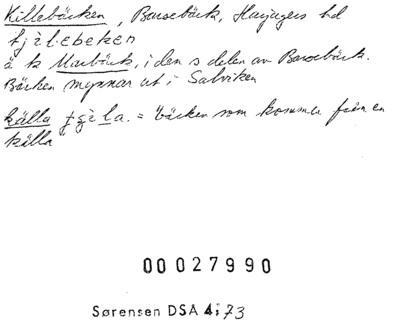 Killebäcken, Barsebäck, Harjagers hd
ä k Marbäck, i den s delen av Barsebäck.
Bäcken mynnar ut i Salviken
källa = bäcken som kommer från en
källa
00027990
Sørensen DSA 4:73